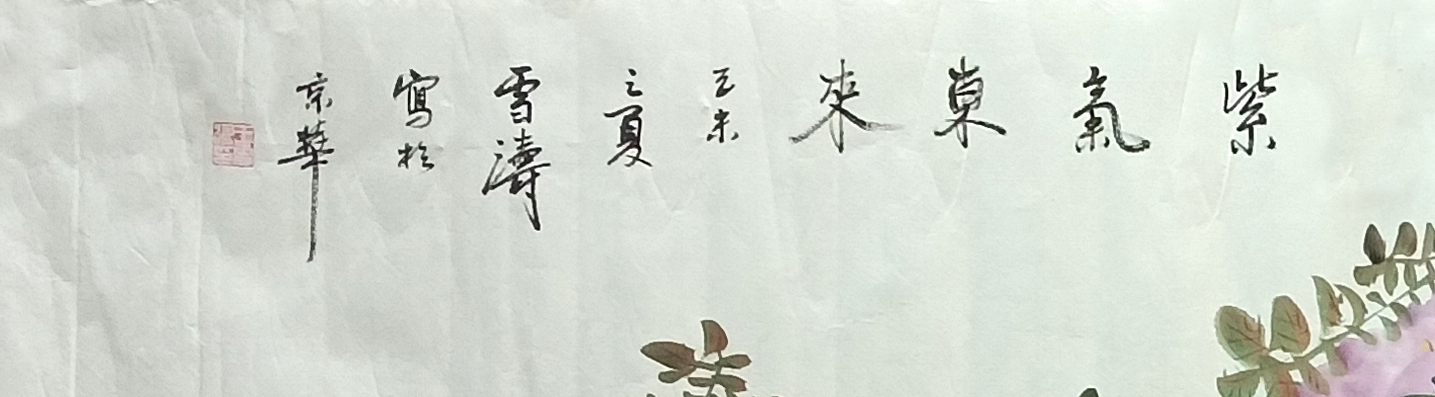 紫氣東來
己未
之夏
雪濤
寫於
京華